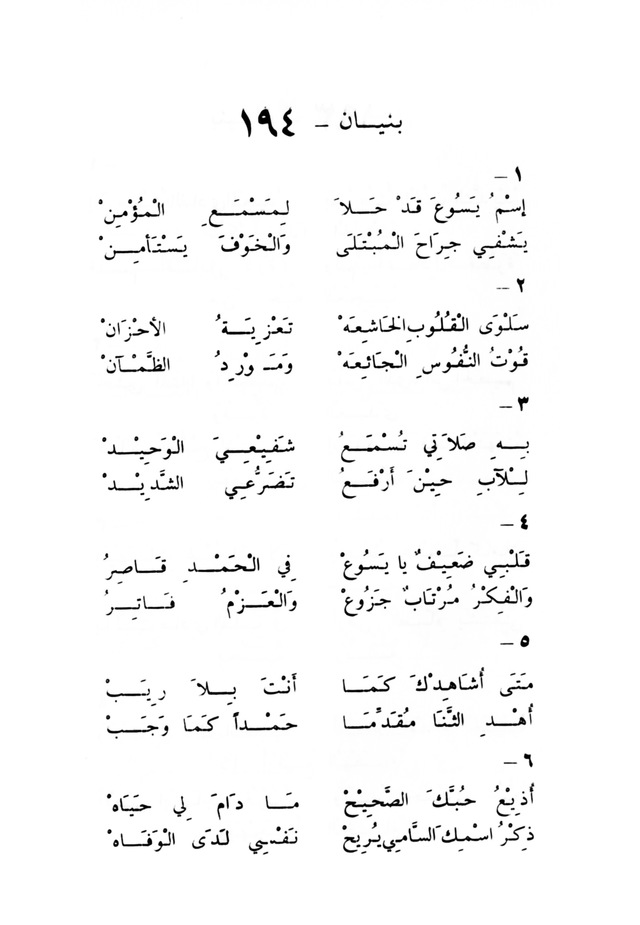 بنيان - ١٩٤
١ -
إسْمُ يَسُوعَ قَدْ حَلاَ لِمَسْمَعِ الْمُؤْمِنْ
يَشْفِي جِرَاحَ الْمُبْتَلَى وَالْخَوْفَ يَسْتَأمِنْ
٢ -
سَلْوَى الْقُلُوبِ الخَاشِعَهْ تَعْزِيَةُ الأحْزَانْ
قُوْتُ النُّفُوسِ الْجَائِعَهْ وَمَوْرِدُ الظَّمْآنْ
٣ -
بِهِ صَلاَتِي تُسْمَعُ شَفِيْعِيَ الْوَحِيْدْ
لِلآبِ حِيْنَ أَرْفَعُ تَضَرُّعِي الشَّدِيْدْ
٤ -
قَلْبِي ضَعِيْفٌ يا يَسُوعْ فِي الْحَمْدِ قَاصِرُ
وَالْفِكْرُ مُرْتَابٌ جَزُوعْ وَالْعَزْمُ فَاتِرُ
٥ -
مَتَى أُشَاهِدْكَ كَمَا أَنْتَ بِلاَ رِيَبْ
أُهْدِ الثَّنَا مُقَدِّمَا حَمْداً كَمَا وَجَبْ
٦ -
أُذِيْعُ حُبَّكَ الصَّحِيْحْ مَا دَامَ لِي حَيَاهْ
ذِكْرُ اسْمِكَ السَّامِي يُرِيحْ نَفْسِي لَدَى الْوَفَاهْ